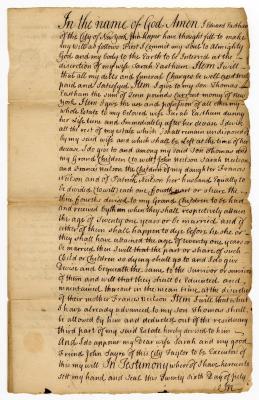 In the name of God Amen I Edward Eastham
of the City of New York have thought fitt to make
my Will as follows First I commit my Soul to Almighty
God and my body to the Earth to be Interred at the
discretion of my wife Sarah Eastham Item I will
that all my debts and funeral Charges be well and truly
paid and Satisfyed Item I give to my Son Thomas
Eastham the Sum of money of New
York Item I give the use and possession of all other my
whole Estate to my beloved wife Sarah Eastham during
her life time and Immediately after her decease I give
all the rest of my Estate which shall remain undisposed
by my said wife and which shall be left at the time of her
decease I do give to and among my said Son Thomas and
my Grand Children (to witt) John Neilson Sarah Neilson
and Frances Neilson the Children of my daughter Frances
Neilson and of Patrick Neilson her husband Equally to
be divided (to witt) each one fourth part or share the
three fourths devised to my Grand Children to be had
and received by them when they shall respectively attain
the age of twenty one years or be married and if
either of them shall happen to dye before he she or
they shall have attained the age of twenty one years or
be married then I will that the part or share of such
Child or Children so dying shall go to and I do give
Devise and bequeath the same to the Survivor or survivors
of them and will that they shall be Educated and
maintained thereout in the mean time at the direction
of their mother Frances Neilson Item I will that what
I have already advanced to my Son Thomas shall
be allowed by him and deducted out of the residuary
third part of my said Estate hereby devised to him
And I do appoint my Dear wife Sarah and my good
Friend John Sayre of this City Taylor to be Executors of
this my will In Testimony whereof I have hereunto
sett my hand and Seal this Twenty Sixth Day of July